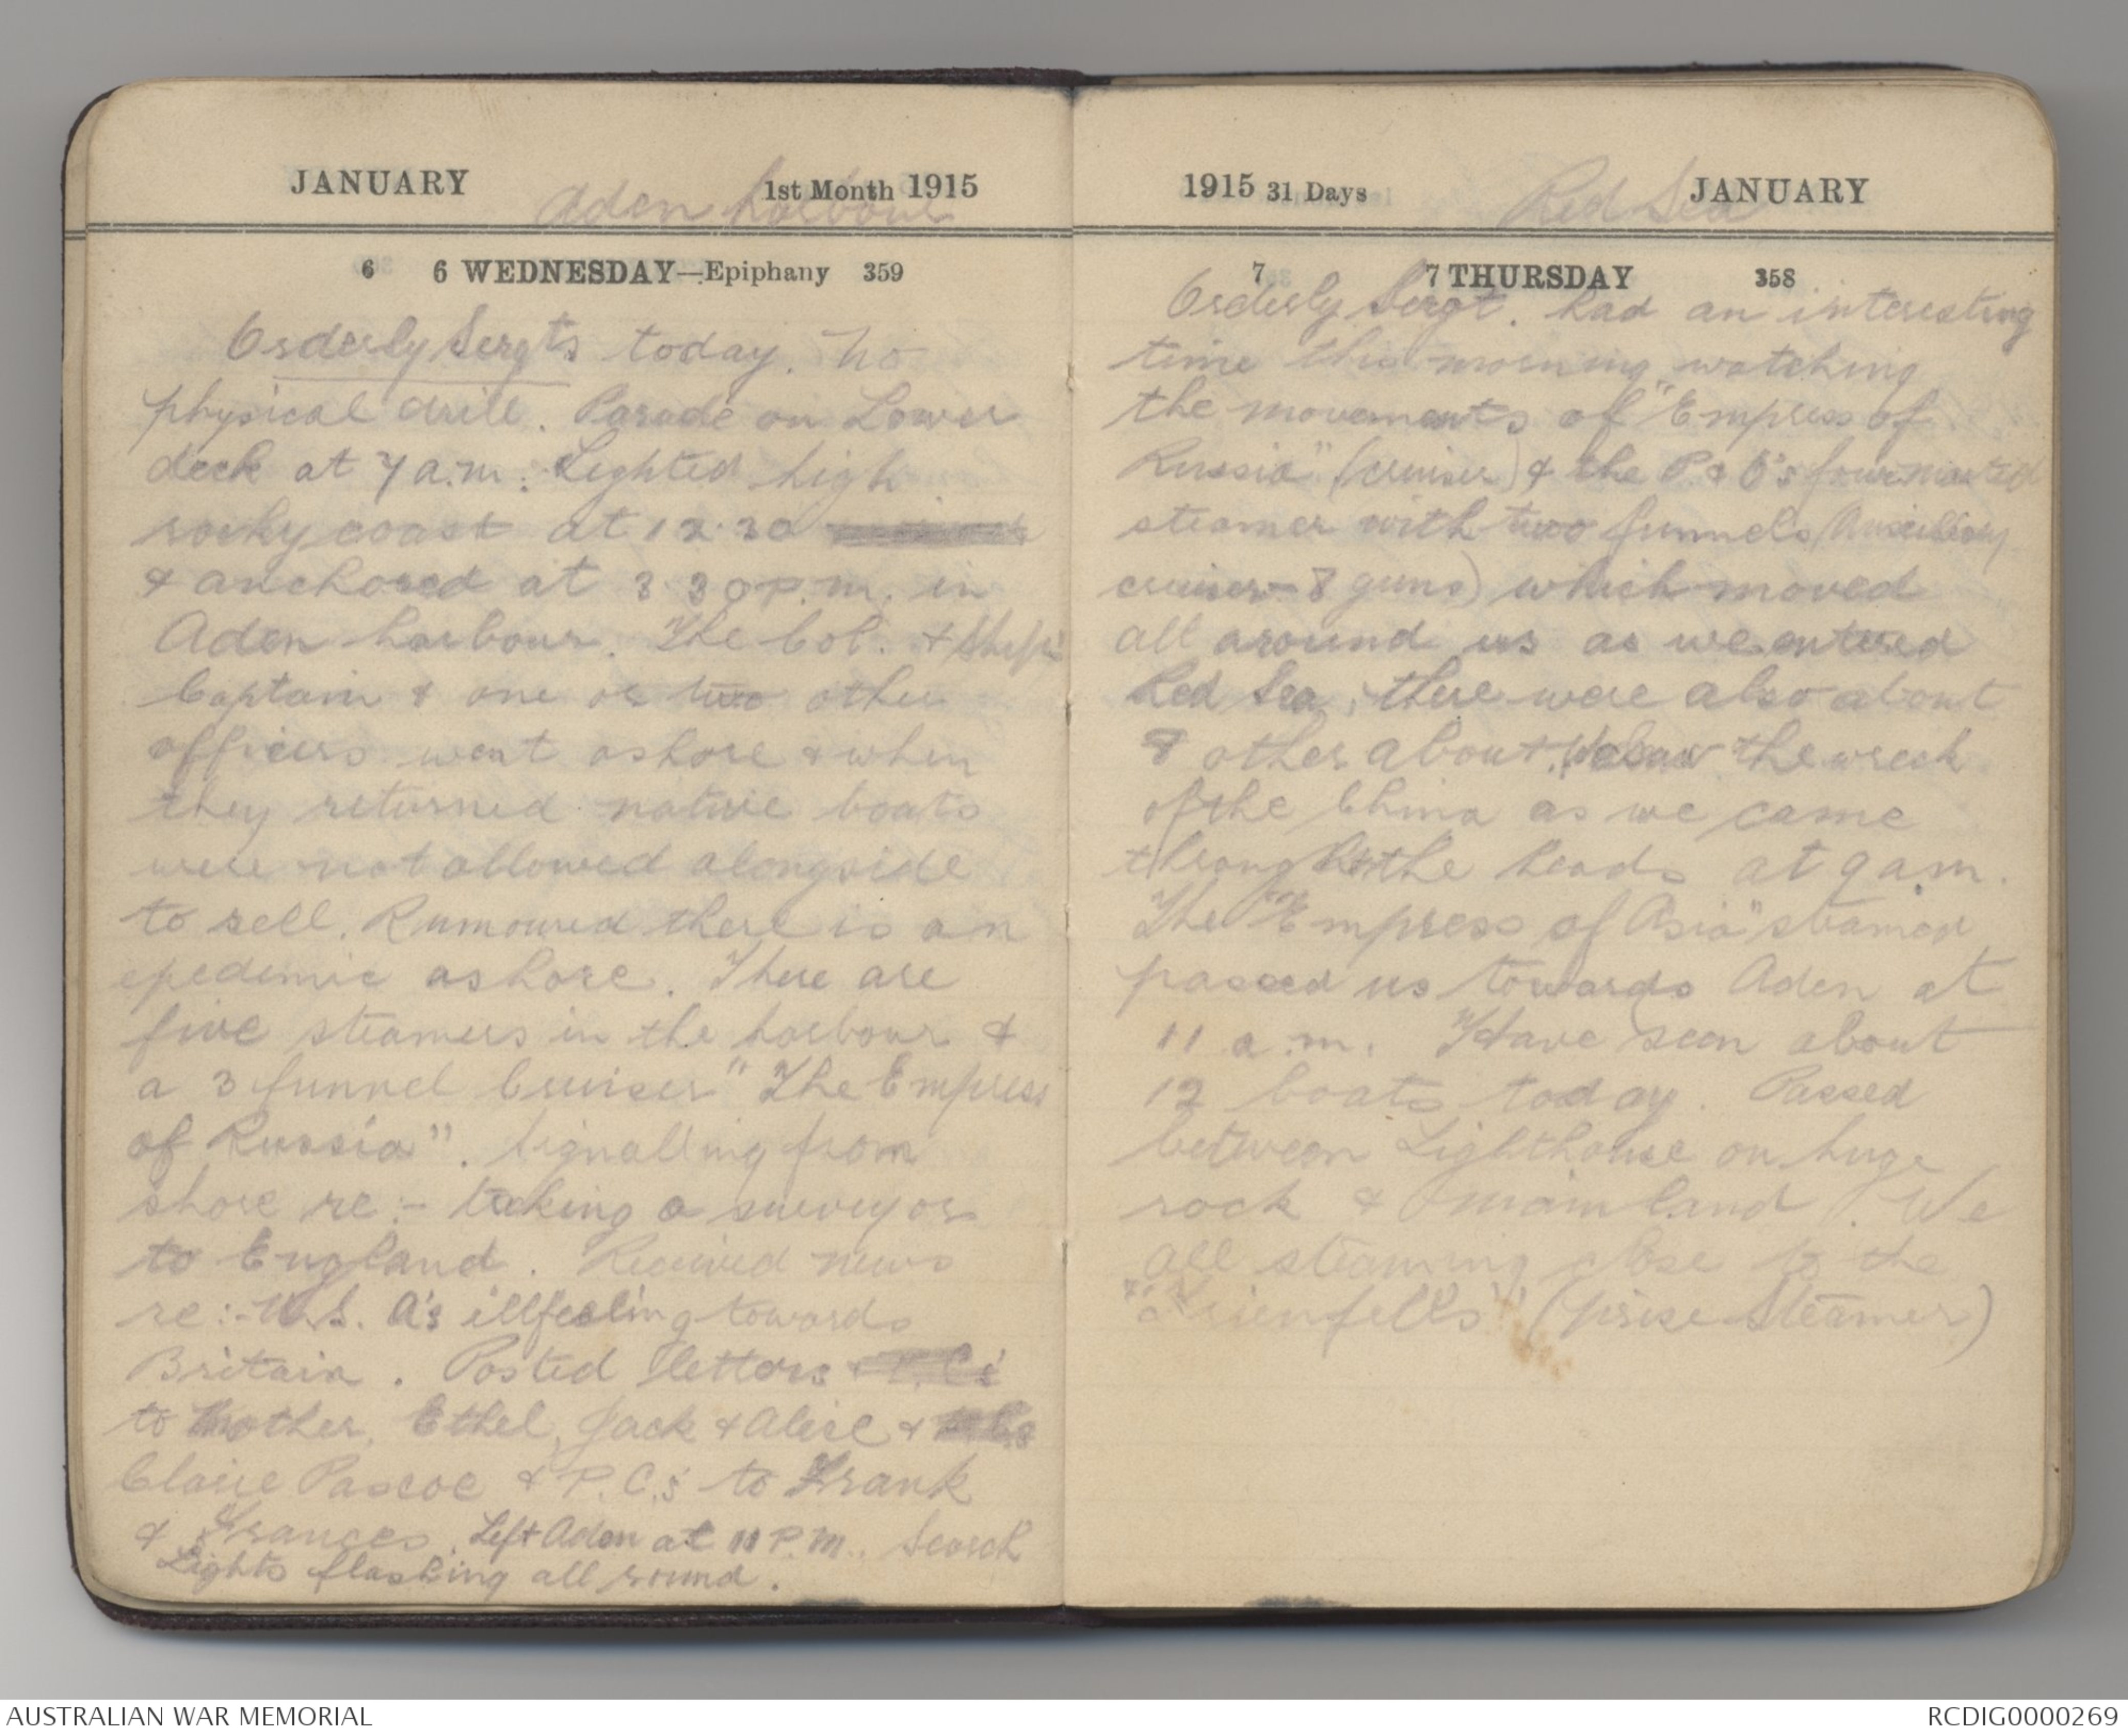 JANUARY 1st Month 1915
Aden harbour
6 6 WEDNESDAY—Epiphany 359
Orderly Sergts today. No
physical drill. Parade on Lower
deck at 7 a.m. Sighted high
rocky coast at 12.30
& anchored at 3 30 p.m. in
Aden harbour. The Col. & Ship's
Captain & one or two other
officers went ashore & when
they returned native boats
were not allowed alongside
to sell. Rumoured there is an
epedemic ashore. There are
five steamers in the harbour &
a 3 funnel Cruiser "The Empress
of Russia". Signalling from
shore re:- taking a surveyor
to England. Received news
re:- U.S. A's illfeeling towards
Britain. Posted letters
to Mother, Ethel, Jack & Alice &
Claire Pascoe & P.C.s to Frank
& Frances. Left Aden at 11 P.M. Search
Lights flashing all round.
1915 31 Days JANUARY
Red Sea
7 7 THURSDAY 358
Orderly Sergt. Had an interesting
time this morning watching
the movements of "Empress of
Russia" (cruiser) & the P. & O's four masted
steamer with two funnels (Auxiliary
cruiser - 8 guns) which moved
all around us as we entered
Red Sea, there were also about
8 other about. We saw the wreck
of the China as we came
through the heads at 9 a.m.
The "Empress of Asia" steamed
passed us towards Aden at
11 a.m. Have seen about
12 boats today. Passed
between Lighthouse on huge
rock & mainland. We
all steaming close to the
(prise Steamer)
AUSTRALIAN WAR MEMORIAL
RCDIG0000269